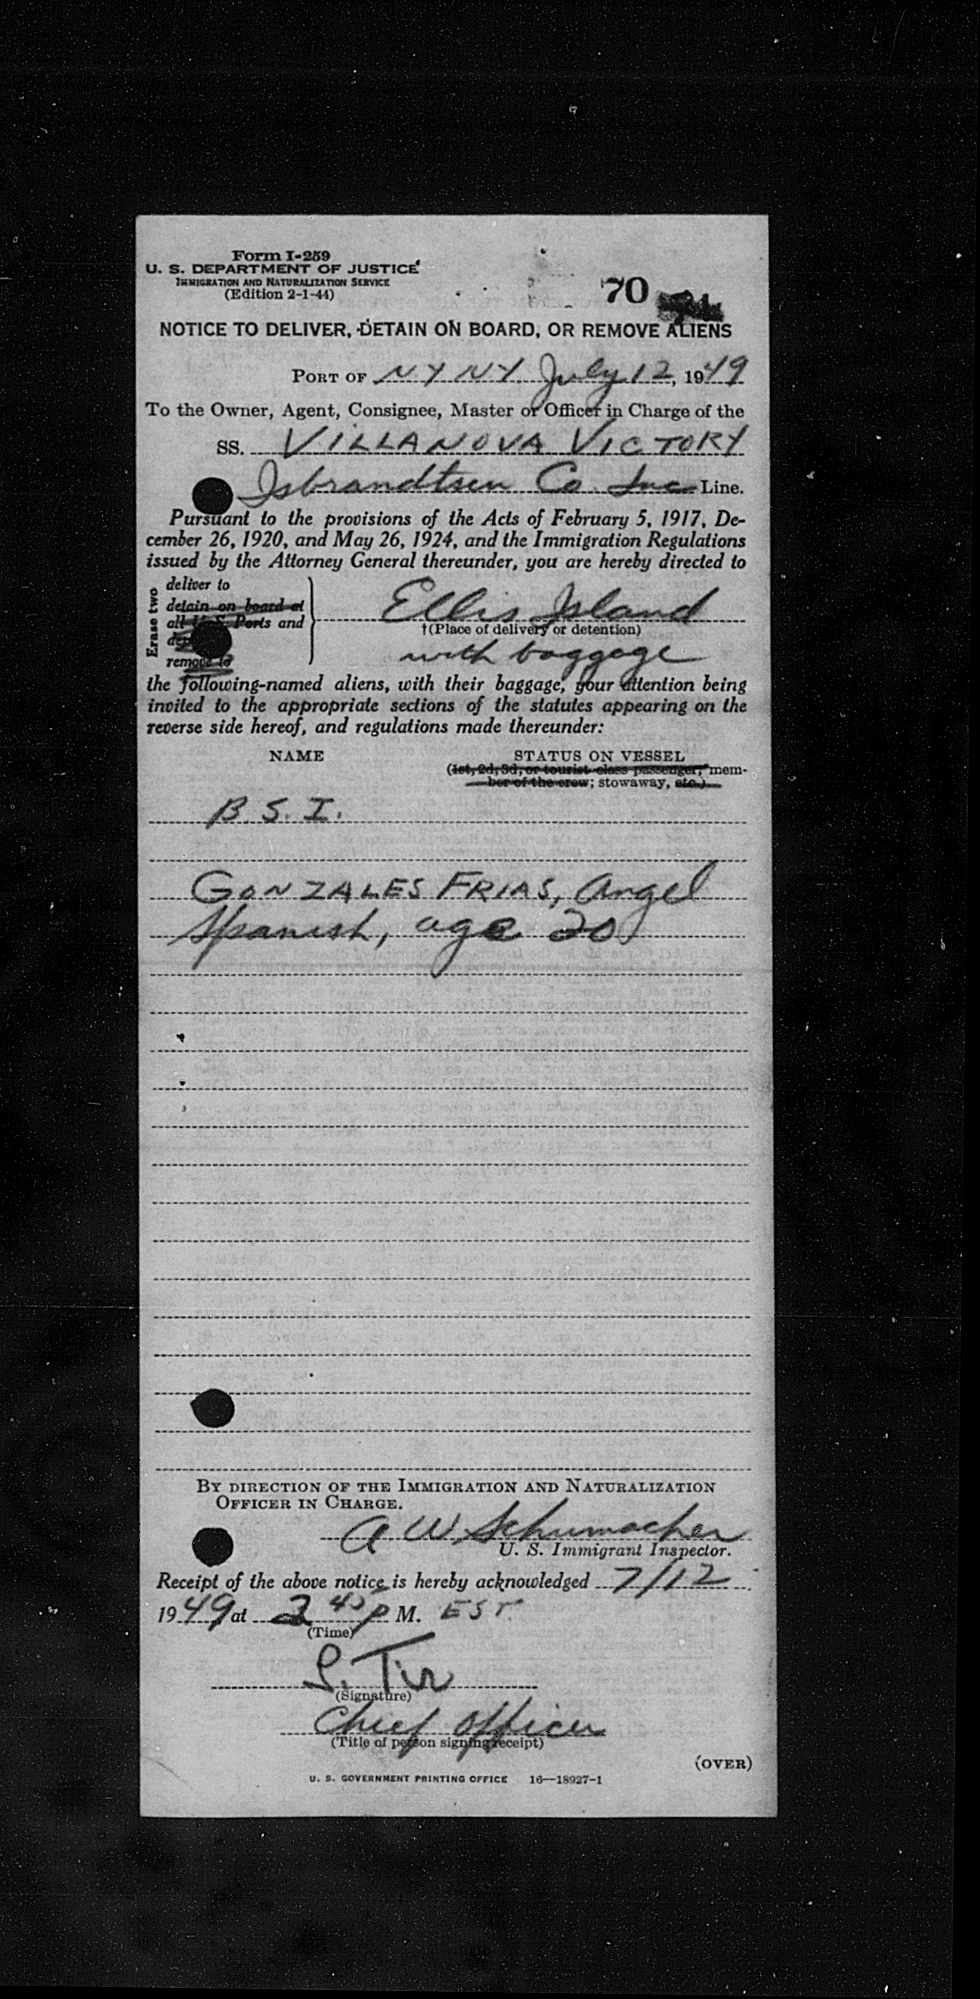 Form I-259
U. S. DEPARTMENT OF JUSTICE
IMMIGRATION AND NATURALIZATION SERVICE
(Edition 2-1-44)
70
NOTICE TO DELIVER, DETAIN ON BOARD, OR REMOVE ALIENS
PORT OF NY NY July 12, 1949
To the Owner, Agent, Consignee, Master or Officer in Charge of the
SS. VILLANOVA VICTORY
Isbrandtsen Co. Inc Line.
Pursuant to the provisions of the Acts of February 5, 1917, De-
cember 26, 1920, and May 26, 1924, and the Immigration Regulations
issued by the Attorney General thereunder, you are hereby directed to
Erase two
deliver to
detain on board at
all U.S. Ports and
remove to
Ellis Island
†(Place of delivery or detention)
with baggage
the following-named aliens, with their baggage, your attention being
invited to the appropriate sections of the statutes appearing on the
reverse side hereof, and regulations made thereunder:
NAME STATUS ON VESSEL
(1st, 2d, 3d, or tourist class passenger, mem-
ber of the crew; stowaway, etc.)
B. S. I.
GONZALES FRIAS, Angel
Spanish, age 20
BY DIRECTION OF THE IMMIGRATION AND NATURALIZATION
OFFICER IN CHARGE.
A W Schumacher
U. S. Immigrant Inspector.
Receipt of the above notice is hereby acknowledged 7/12
1949 at 2 45 P M. EST
(Time)
(Signature)
Chief Officer
(Title of person signing receipt)
(OVER)
U. S. GOVERNMENT PRINTING OFFICE 16—18927-1